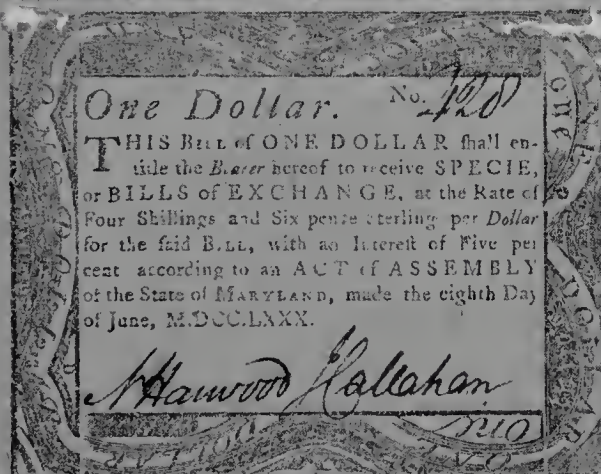 One Dollar. No. 428
THIS BILL of ONE DOLLAR ſhall en-
title the Bearer hereof to receive SPECIE,
or BILLS of EXCHANGE, at the Rate of
Four Shillings and Six pence sterling per Dollar
for the ſaid BILL, with an Intereſt of Five per
cent according to an ACT of ASSEMBLY
of the State of MARYLAND, made the eighth Day
of June, M.DCC.LXXX.
N Harwood J Callahan